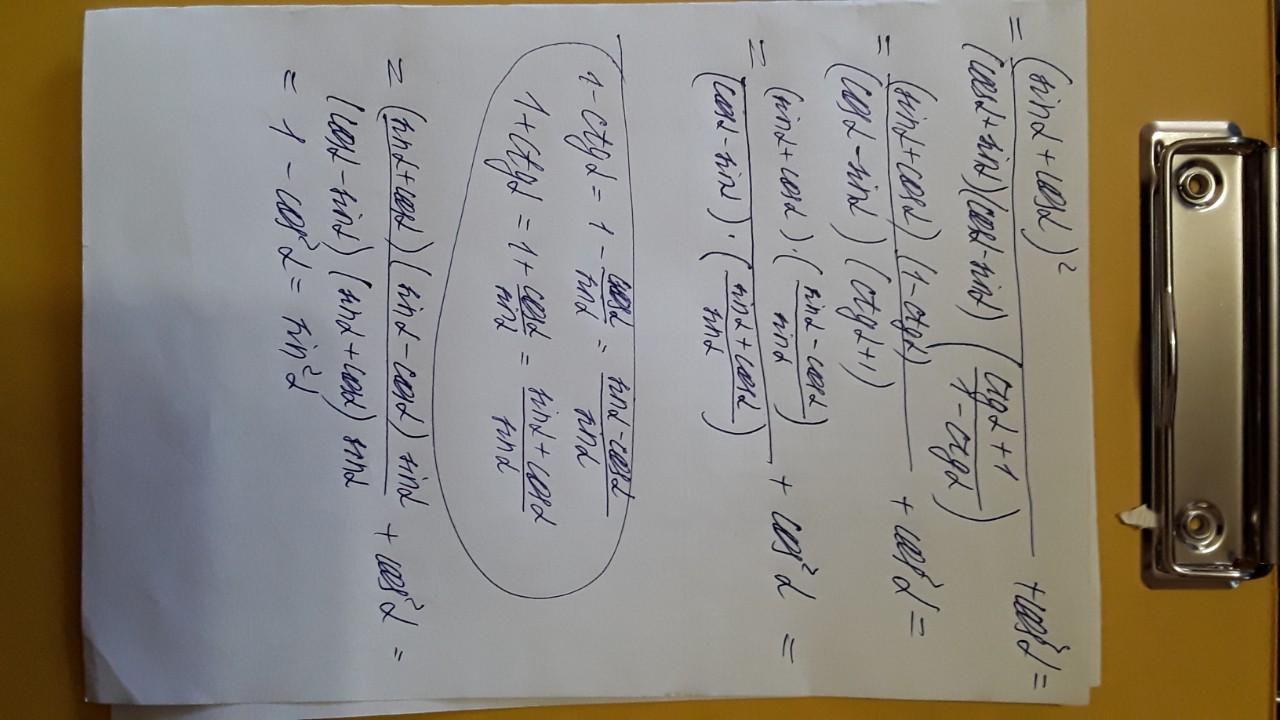 = (sinα + cosα)² / (cosα + sinα)(cosα - sinα) ((ctgα + 1) / (1 - ctgα)) + cos²α =
= (sinα + cosα)(1 - ctgα) / (cosα - sinα)(ctgα + 1) + cos²α =
= (sinα + cosα) · ((sinα - cosα) / sinα) / (cosα - sinα) · ((sinα + cosα) / sinα) + cos²α =
1 - ctgα = 1 - cosα / sinα = (sinα - cosα) / sinα
1 + ctgα = 1 + cosα / sinα = (sinα + cosα) / sinα
= (sinα + cosα)(sinα - cosα) sinα / (cosα - sinα)(sinα + cosα) sinα + cos²α =
= 1 - cos²α = sin²α